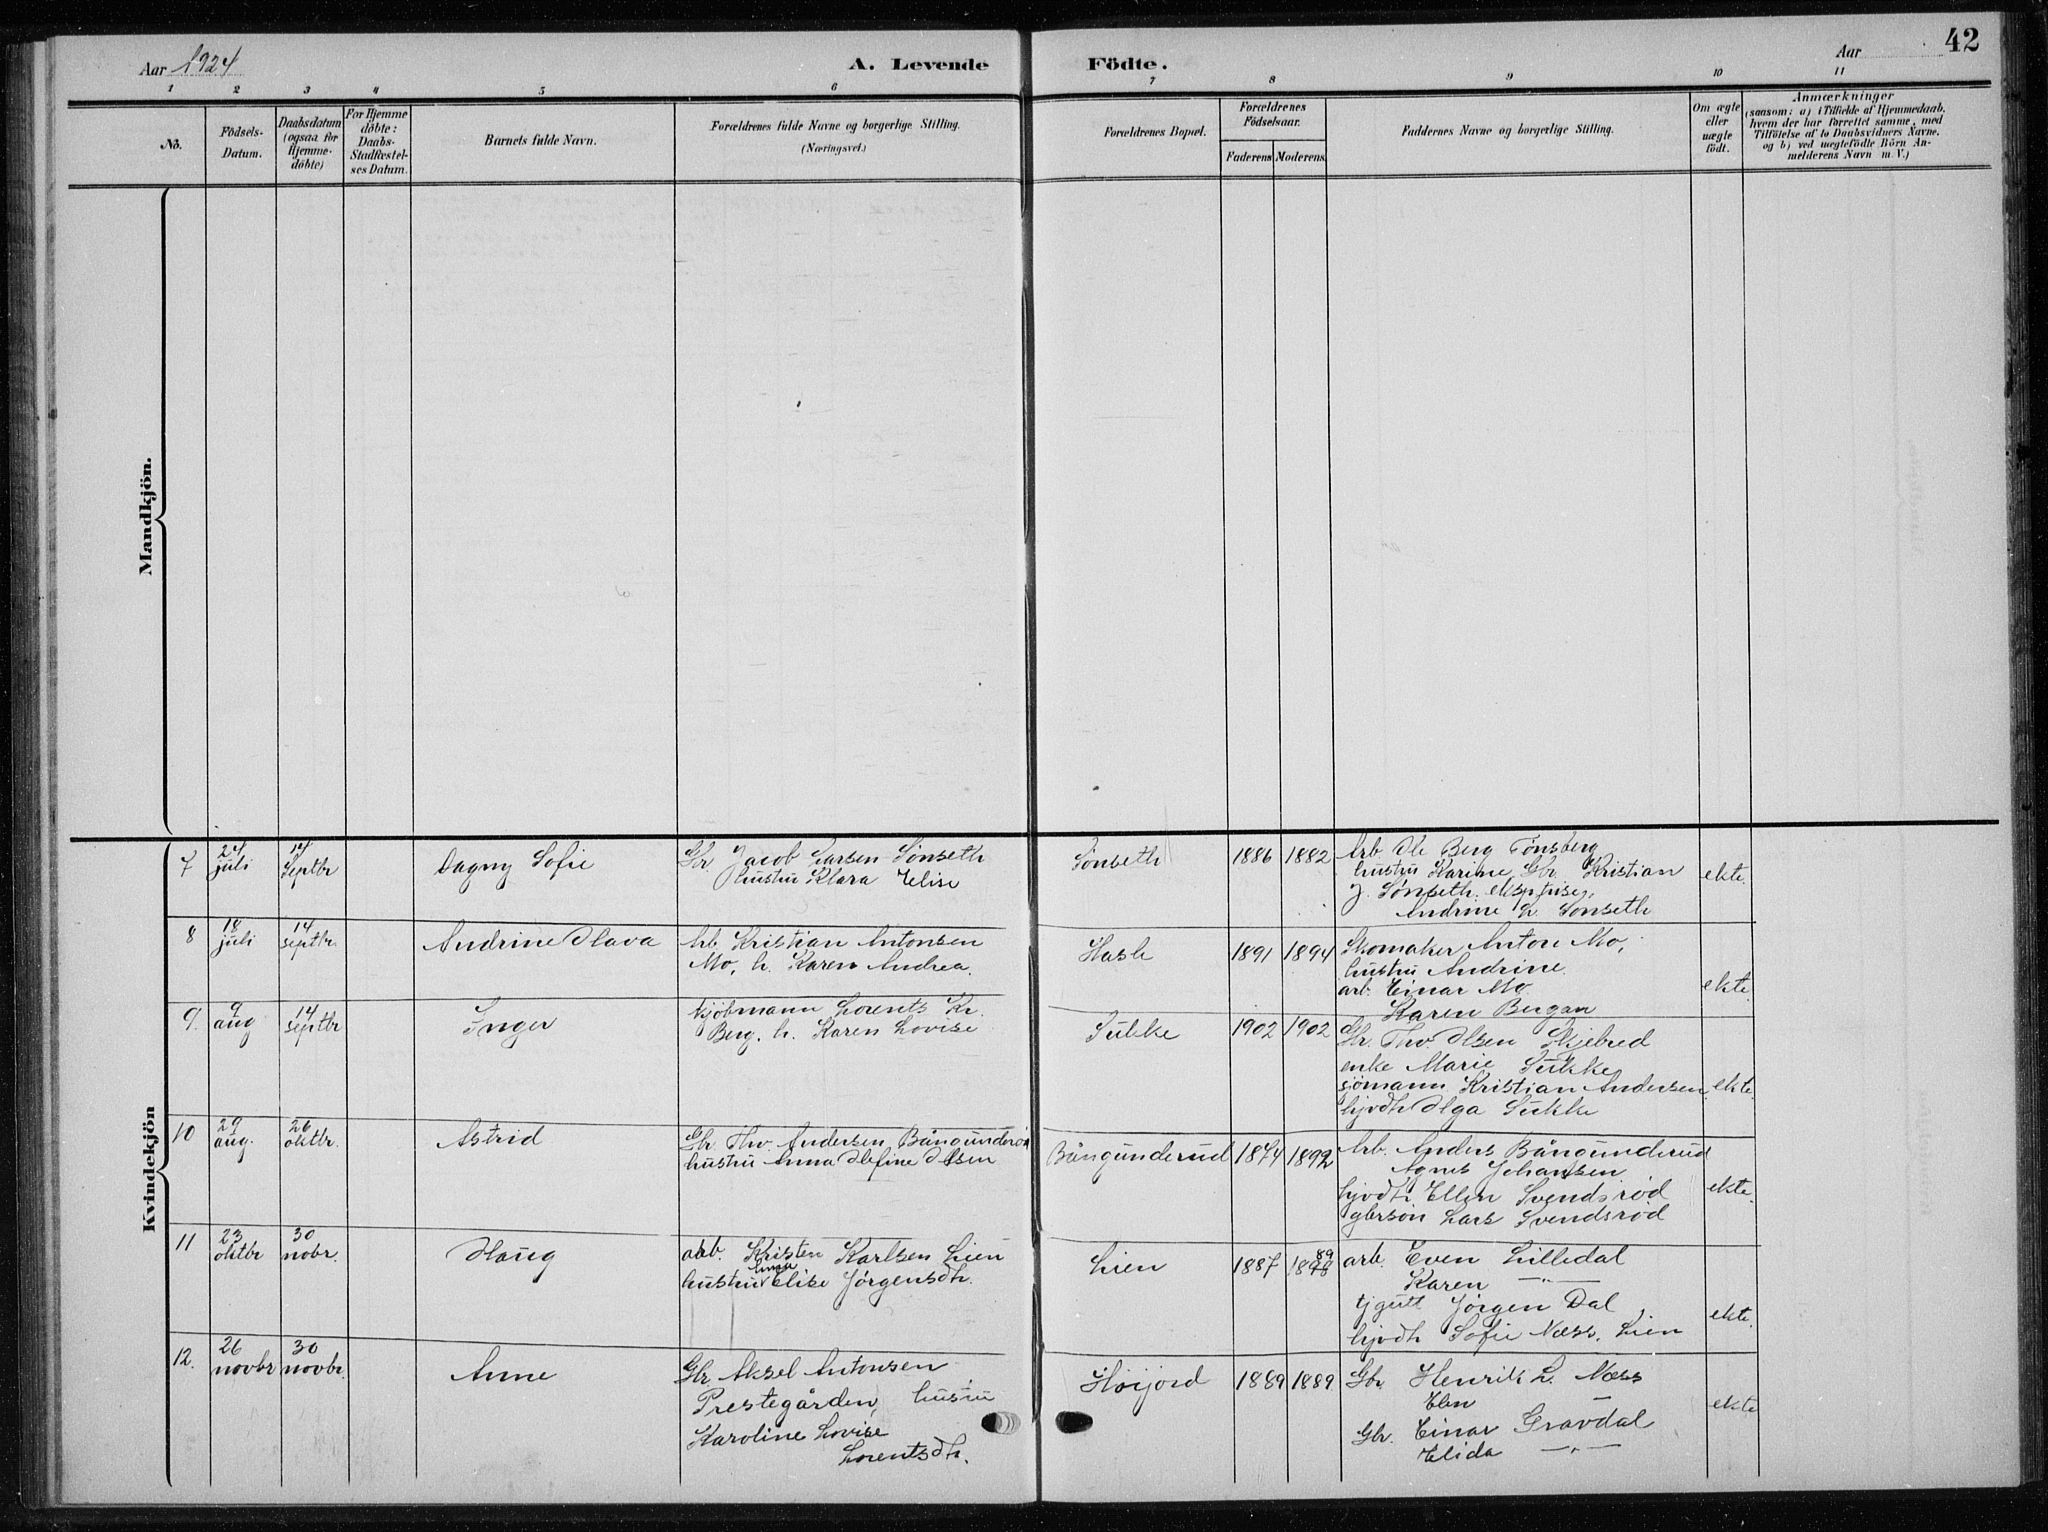 Aar 1924
A. Levende Födte.
Aar
42
1 2 3 4 5 6 7 8 9 10 11
No.
Födsels-
Datum.
Daabsdatum
(ogsaa for
Hjemme-
döbte)
For Hjemme
döbte:
Daabs-
Stadfæstel-
ses Datum.
Barnets fulde Navn.
Forældrenes fulde Navne og borgerlige Stilling.
(Næringsvei.)
Forældrenes Bopæl.
Forældrenes
Födselsaar.
Faderens Moderens.
Faddernes Navne og borgerlige Stilling.
Om ægte
eller
uægte
födt.
Anmærkninger
(saasom: a) i Tilfælde af Hjemmedaab,
hvem der har forrettet samme, med
Tilföielse af to Daabsvidners Navne.
og b) ved uægtefödte Börn An-
melderens Navn m. V.)
Mandkjön.
Kvindekjön
7
24
juli
14
Septbr
Dagny Sofie
Gbr. Jacob Larsen Sønseth
hustru Klara Elise
Sønseth
1886 1882
Arb Ole Berg Tönsberg
hustru Karine Gbr. Kristian
J. Sønseth.
Andrine L. Sønseth
ekte.
8
18
juli
14
septbr.
Andrine Olava
Arb Kristian Antonsen
Mo, h. Karen Andrea.
Hasle
1891 1894
Skomaker Anton Mo,
hustru Andrine.
arb. Einar Mo.
Karen Bergan
ekte.
9.
9
aug
14
septbr
Inger
kjöbmann Lorents Kr.
Berg. h. Karen Lovise
Sukke
1902 1902
Gbr. Thv. Olsen Skjebred
enke Marie Sukke
sjömann Kristian Andersen
hjvdh Olga Sukke
ekte.
10
29
aug.
26
oktbr.
Astrid
Gbr. Thv. Andersen Bångunderød
hustru Anna Olefine Olsen
Bångunderud
1874 1892
Arb. Anders Bångunderud
Agnes Johansen
hjvdh Ellen Svendsrød
gbrsøn Lars Svendsrød
ekte.
11
23
oktbr
30
nobr.
Olaug
arb. Kristen Karlsen Lien
Anna
hustru Elise Jørgensdh.
Lien
1887
89
arb. Even Lilledal
Karen —"—
tjgutt Jørgen Dal
hjvdh Sofie Næss. Lien
ekte.
12.
26
novbr
30
novbr.
Anne
Gbr Aksel Antonsen
Prestegården, hustru
Karoline Lovise
Lorentsdh.
Høijord
1889 1889
Gbr. Henrik L. Næss
Elen —
Gbr. Einar Gravdal
Elida —"—
ekte